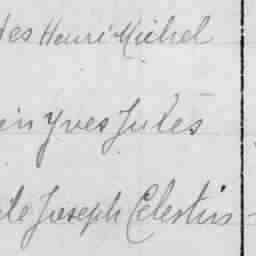 des Henri Michel
Yves Jules
Joseph Celestin